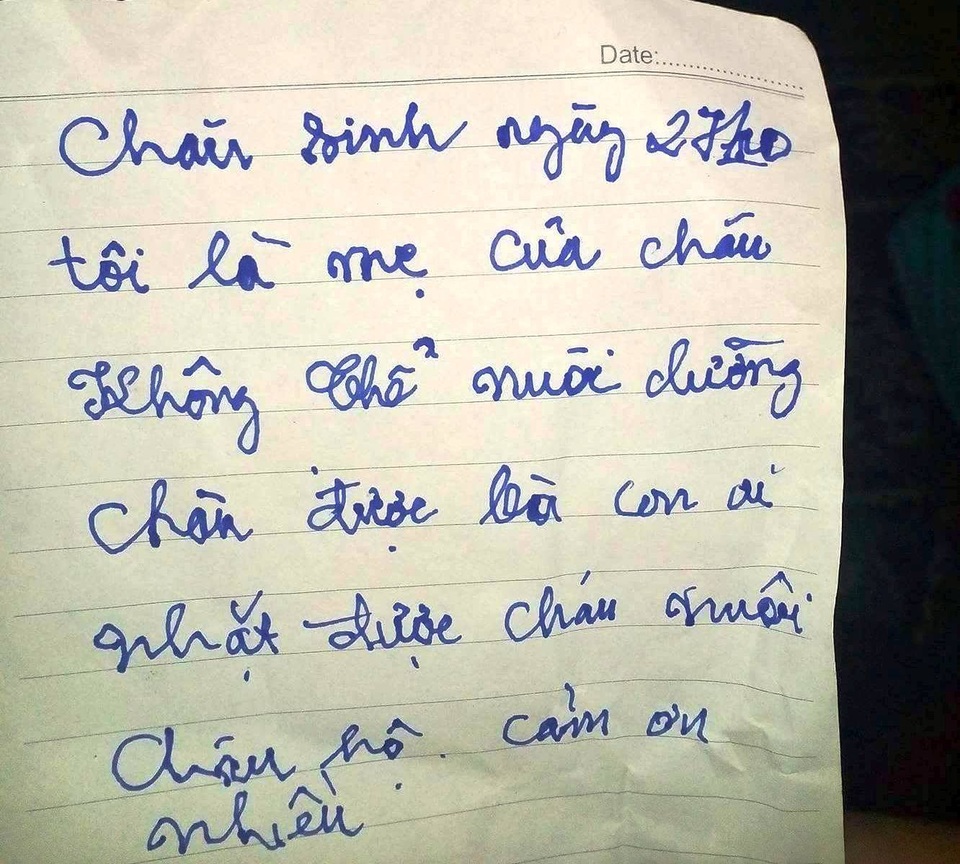 Date:
Cháu sinh ngày 27/10
tôi là mẹ của cháu
Không thể nuôi dưỡng
cháu được bà con ai
nhặt được cháu nuôi
cháu hộ. cảm ơn
nhiều